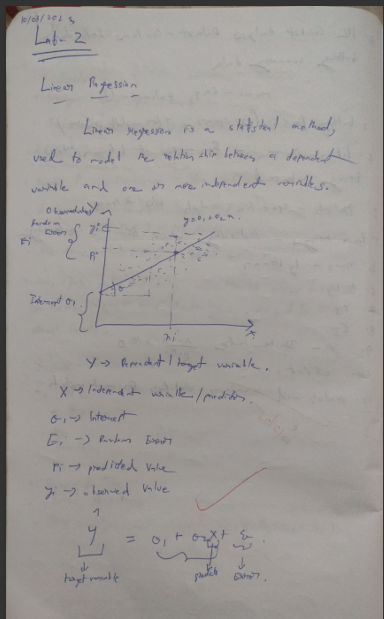 Lab-2
Linear Regression
Linear regression is a statistical method,
used to model the relationship between a dependent
variable and one or more independent variables.
Observed value
Random
Error
yi
y=θ1+θ2x
εi
Pi
θ
Intercept θ1
xi
x
Y → Dependent / target variable.
X → Independent variable / predictor.
θ1 → Intercept
Ei → Random Error
Pi → predicted value
yi → observed value
ŷ = θ1 + θ2x + ε.
target variable
Error.